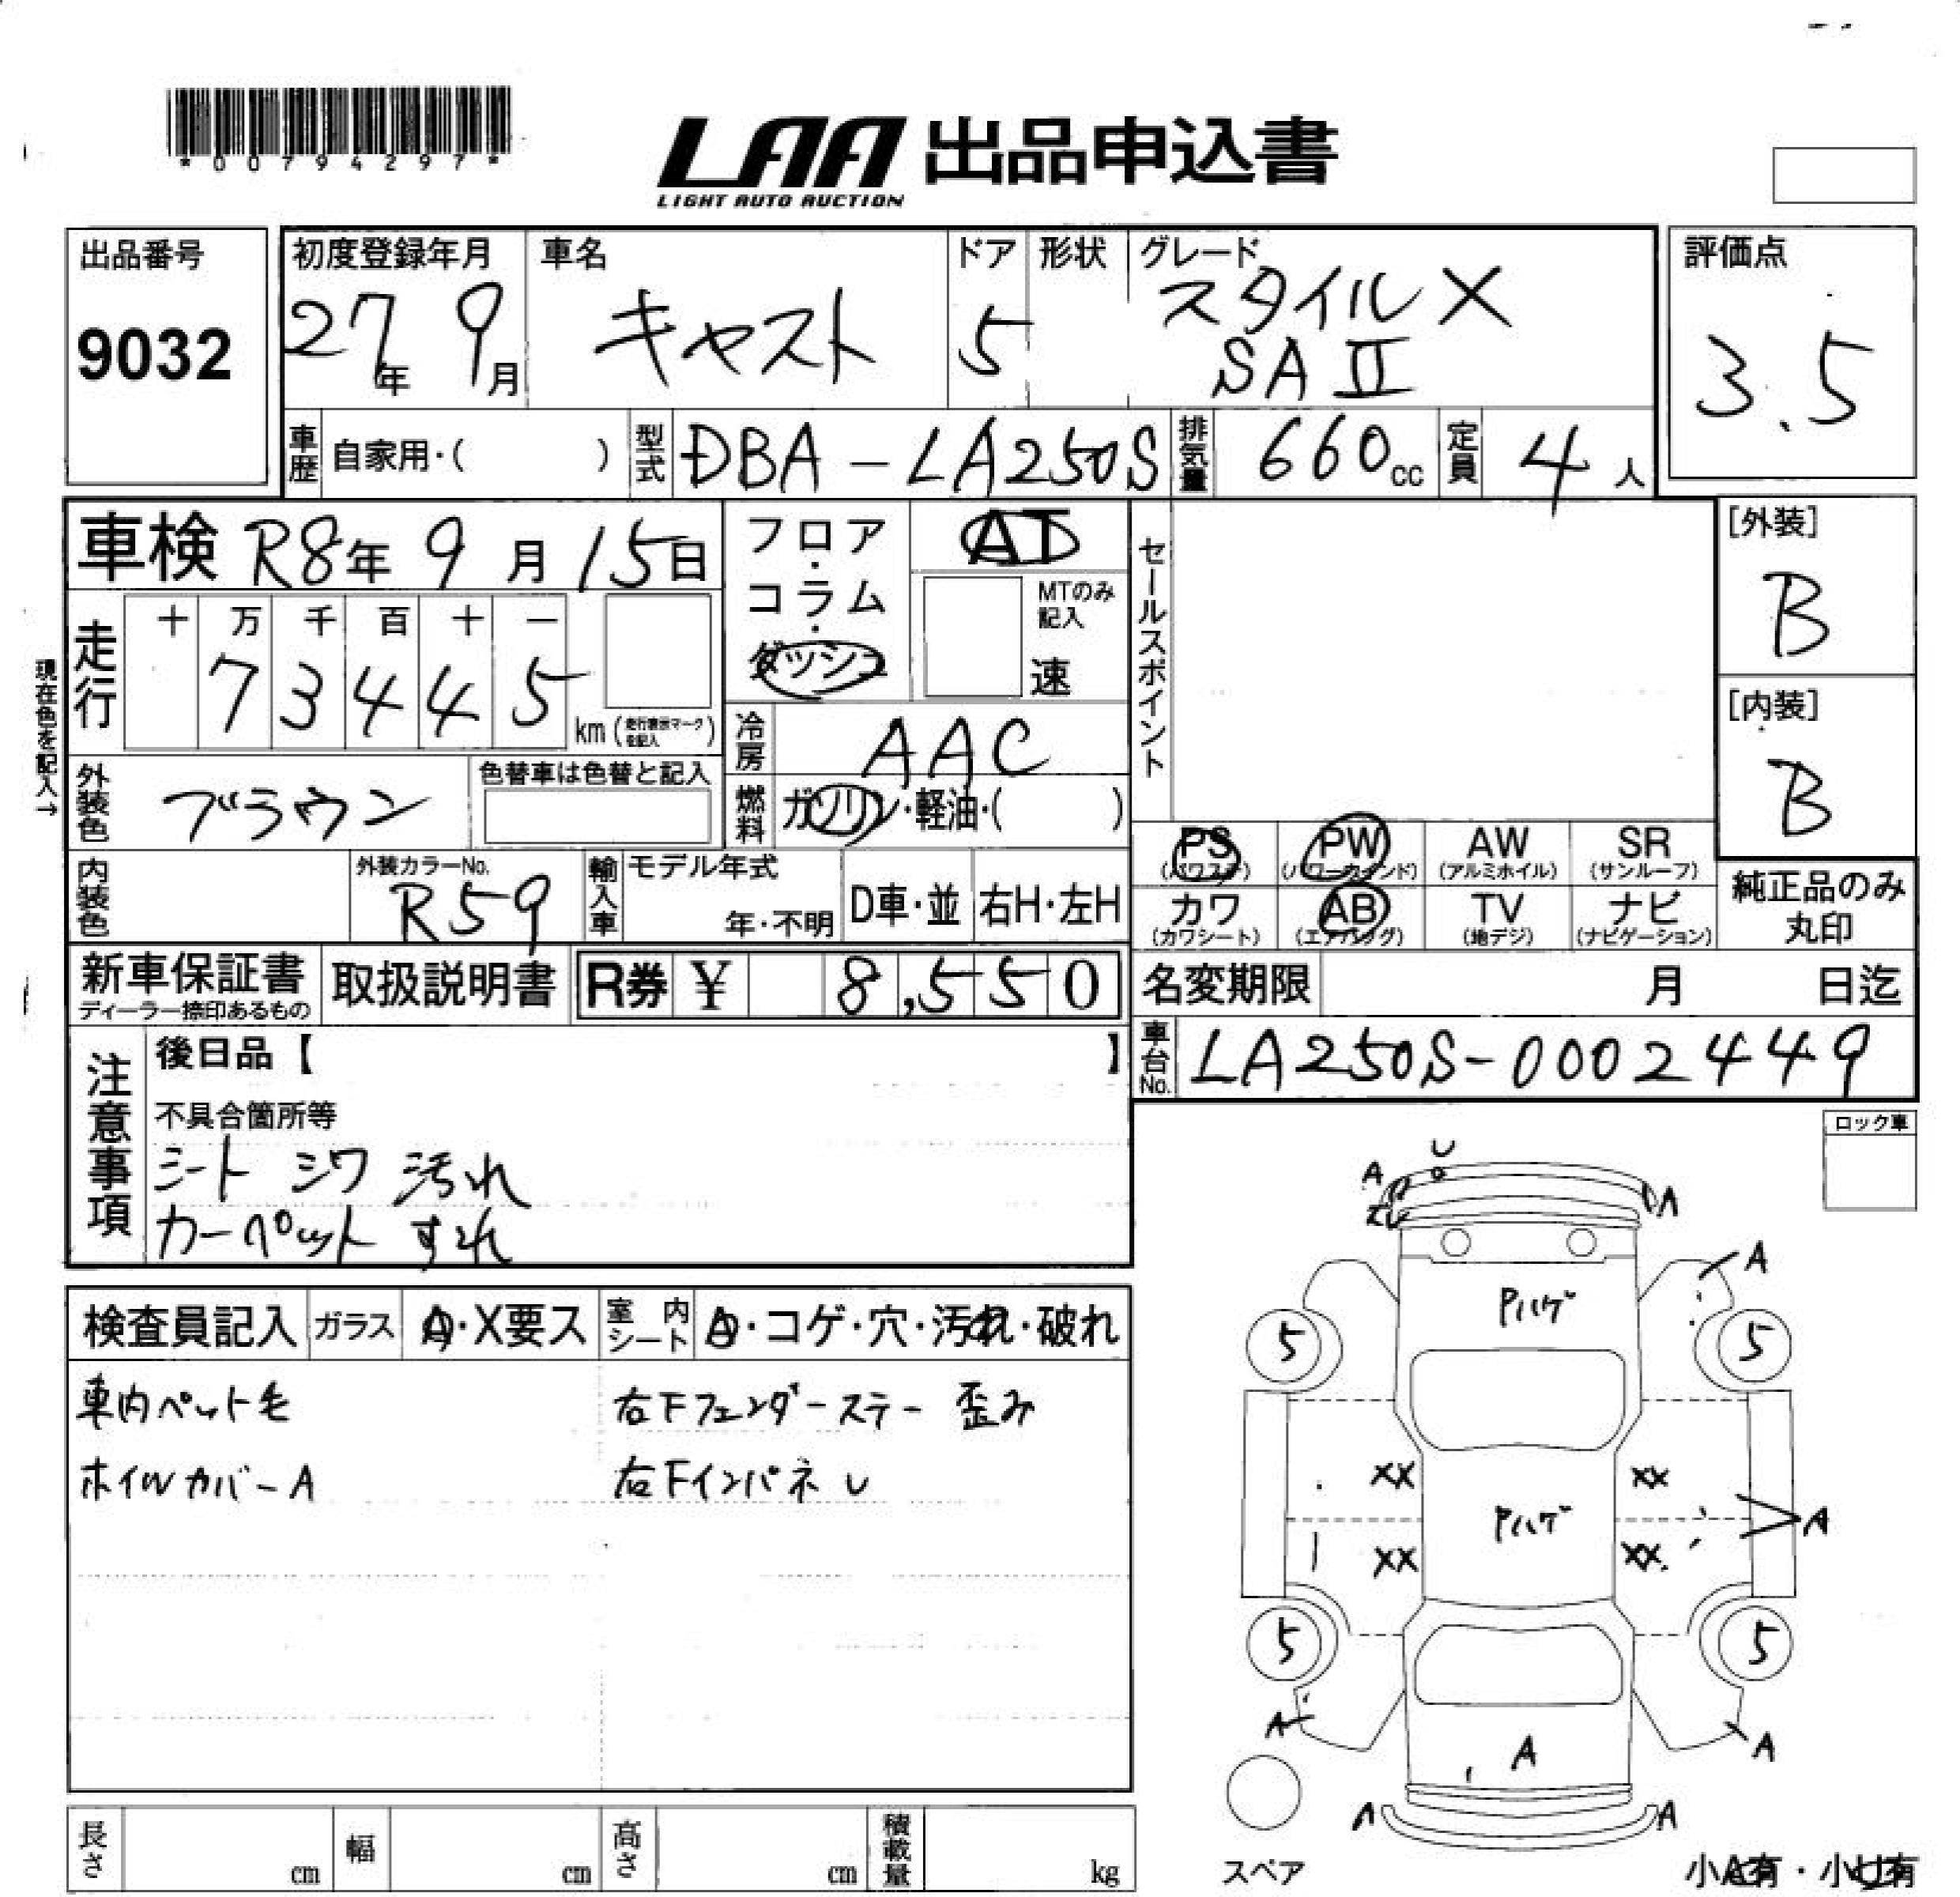 *00794297*
LAA 出品申込書
LIGHT AUTO AUCTION
出品番号
9032
初度登録年月
27年 9月
車名
キャスト
ドア
5
形状
グレード
スタイル X
SA II
評価点
3.5
車歴 自家用・( )
型式 DBA-LA250S
排気量 660cc
定員 4人
車検 R8年 9月 15日
フロア・コラム・ダッシュ
AT
MTのみ記入
速
セールスポイント
[外装]
B
[内装]
B
現在色を記入→
走行
十 万 千 百 十 一
7 3 4 4 5
km (走行表示マークを記入)
冷房 AAC
外装色 ブラウン
色替車は色替と記入
燃料 ガソリン・軽油・( )
PS (パワステ)
PW (パワーウインド)
AW (アルミホイル)
SR (サンルーフ)
カワ (カワシート)
AB (エアバッグ)
TV (地デジ)
ナビ (ナビゲーション)
純正品のみ
丸印
内装色
外装カラーNo.
R59
輸入車
モデル年式
年・不明
D車・並
右H・左H
新車保証書
ディーラー捺印あるもの
取扱説明書
R券 ¥ 8,550
名変期限 月 日迄
車台No. LA250S-0002449
注意事項
後日品【 】
不具合箇所等
シート シワ 汚れ
カーペット すれ
ロック車
検査員記入
ガラス A・X要ス
室内シート A・コゲ・穴・汚れ・破れ
車内ペット毛
ホイルカバーA
右Fフェンダーステー 歪み
右Fインパネ U
U
A
A
A
Pハゲ
5
5
XX
XX
Pハゲ
A
XX
XX
5
5
A
A
A
A
A
スペア
小A有・小U有
長さ cm
幅 cm
高さ cm
積載量 kg